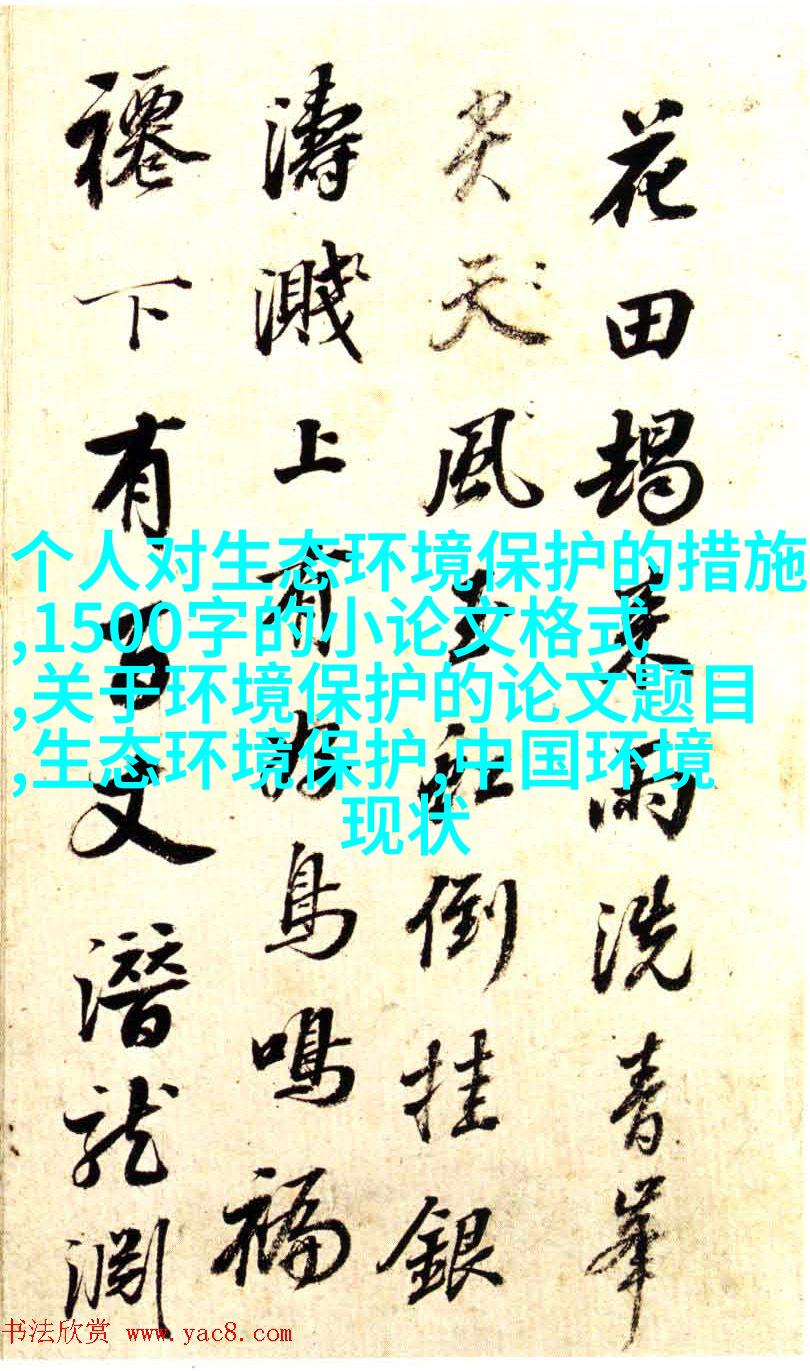 花田朅来雨洗青峯
尖天風玉虹倒挂銀
濤濺上有好鳥鳴福
下有百丈潛龍淵
个人对生态环境保护的措施
,1500字的小论文格式
,关于环境保护的论文题目
,生态环境保护,中国环境
现状
书法欣赏 www.yac8.com